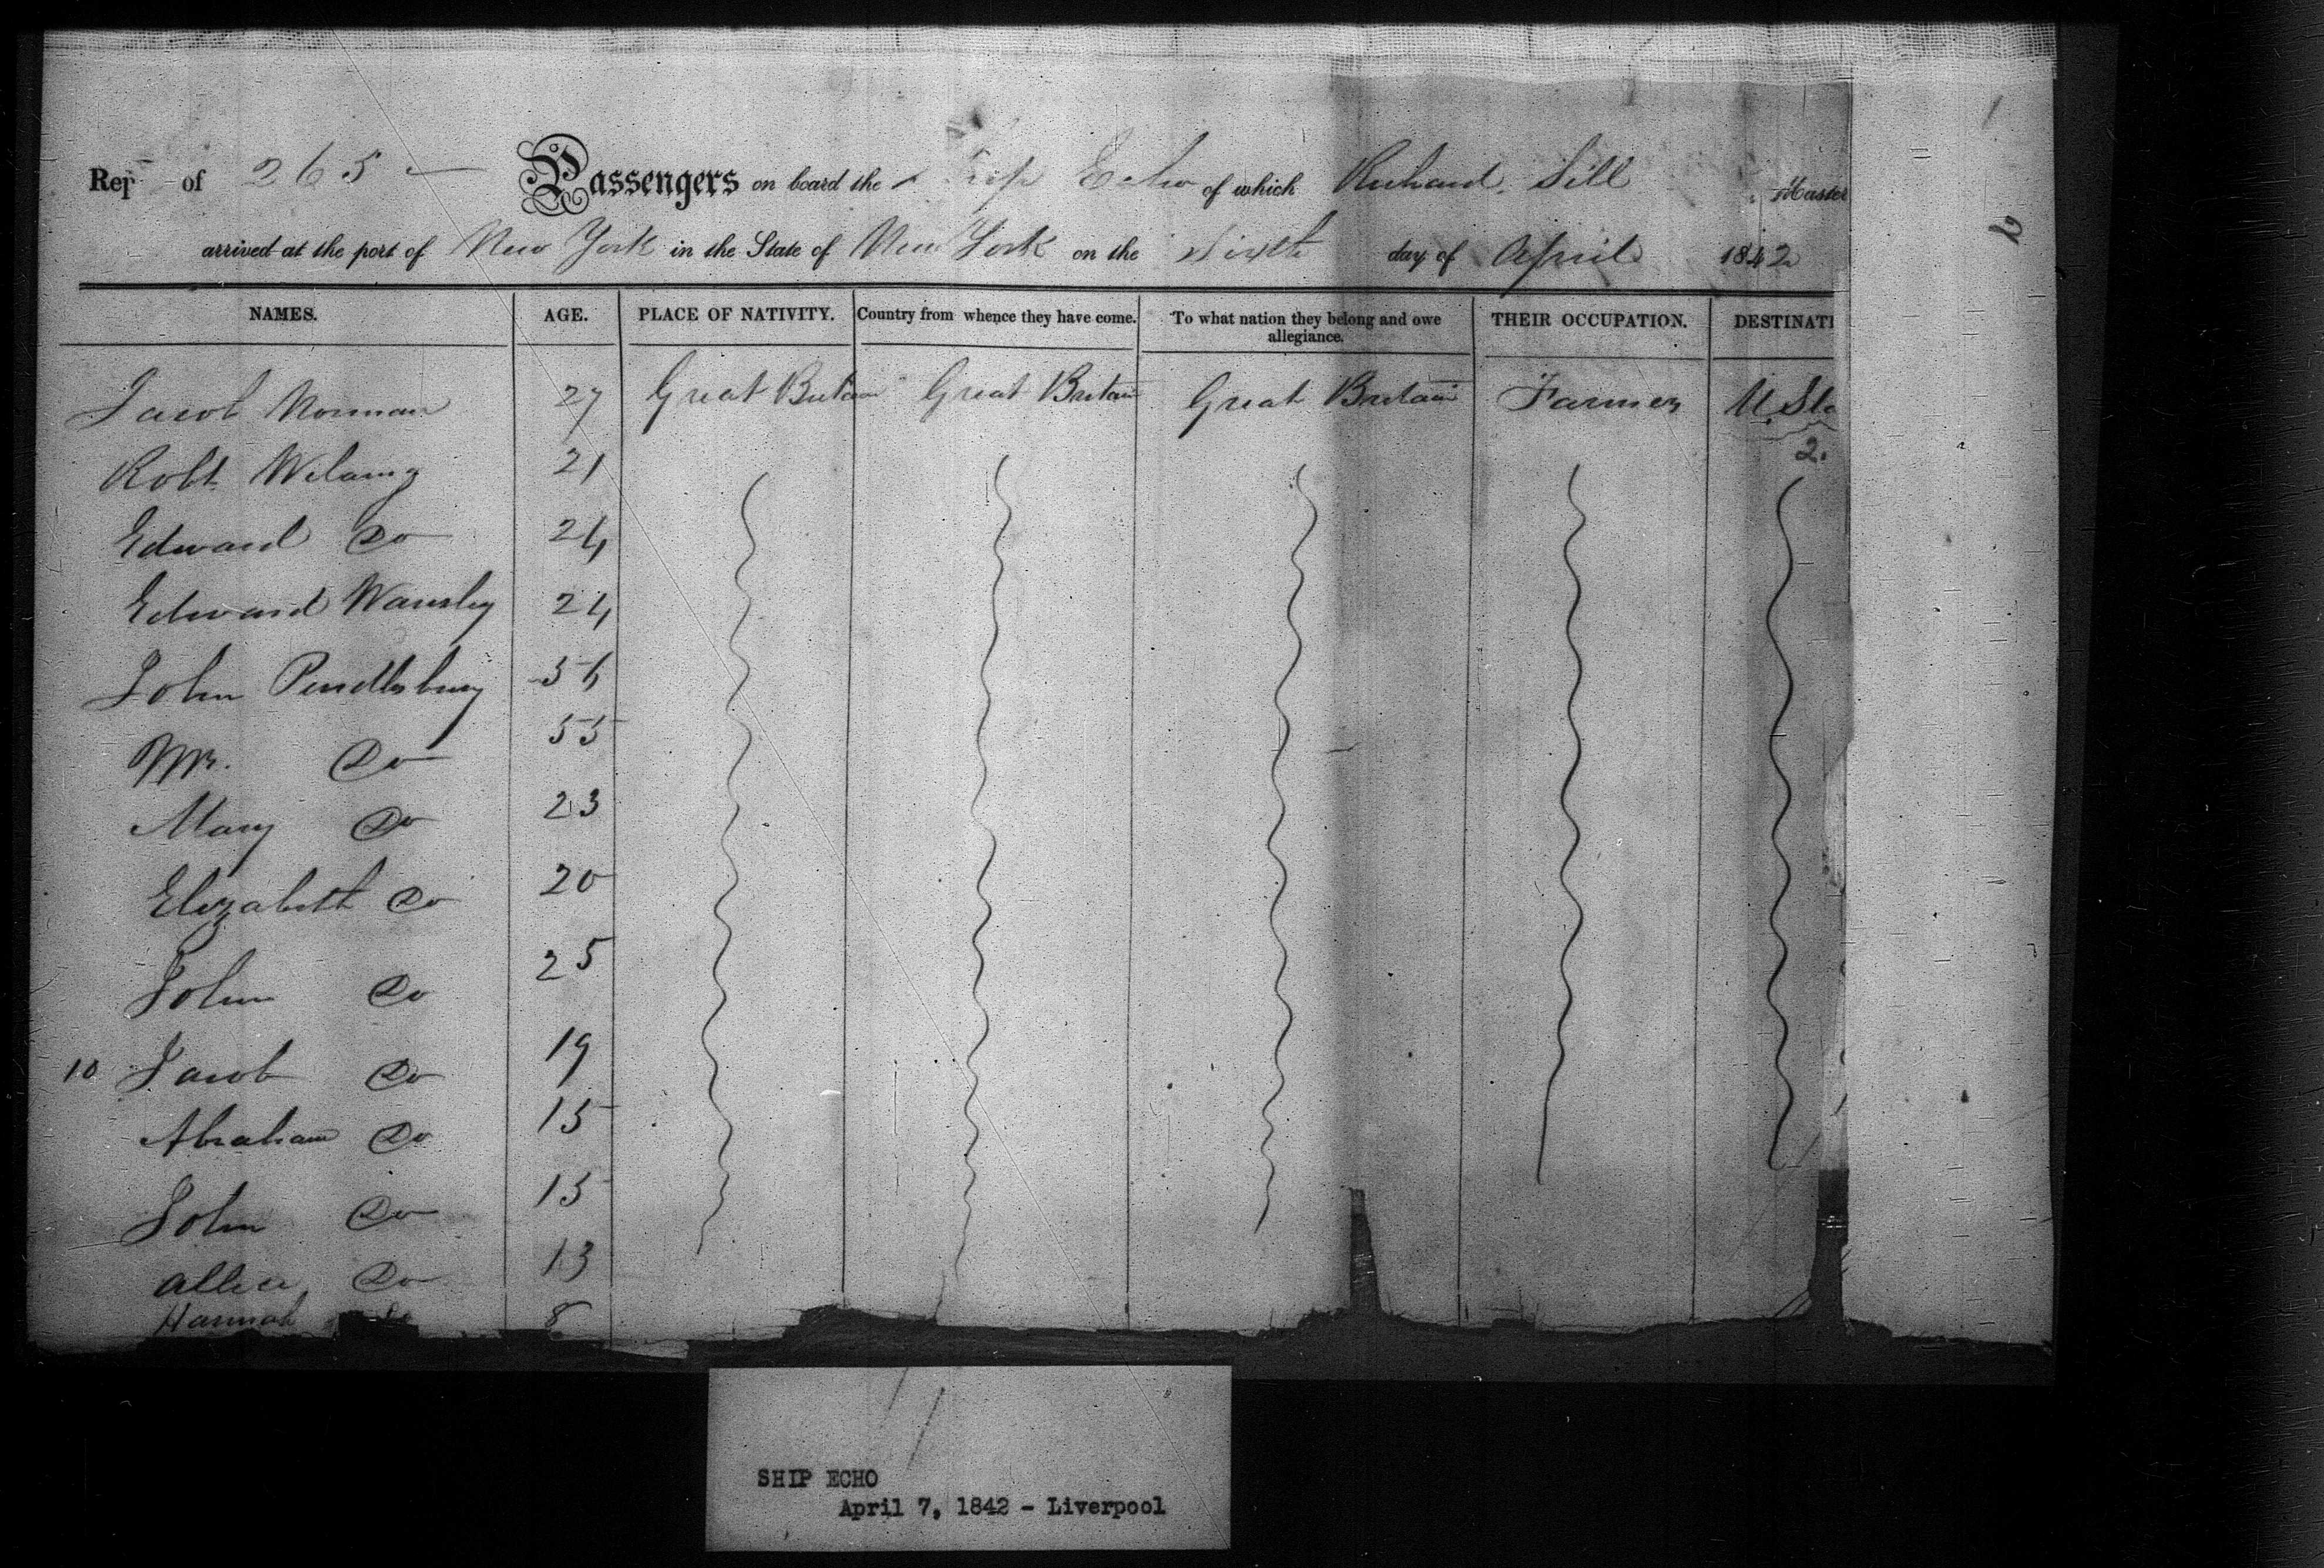 Rep of 265 — Passengers on board the Ship Echo of which Richard Sill Master
arrived at the port of New York in the State of New York on the Sixth day of April 1842
NAMES. AGE. PLACE OF NATIVITY. Country from whence they have come. To what nation they belong and owe allegiance. THEIR OCCUPATION. DESTINATI
Jacob Norman 27 Great Britain Great Britain Great Britain Farmer U Sta
2.
Robt 21
Edward Do 24
Edward Wansley 24
John Pendlbury 56
Mr. Do 55
Mary Do 23
Elizabeth Do 20
John Do 25
10 Jacob Do 19
Abraham Do 15
John Do 15
Allice Do 13
Hannah Do 8
SHIP ECHO
April 7, 1842 - Liverpool